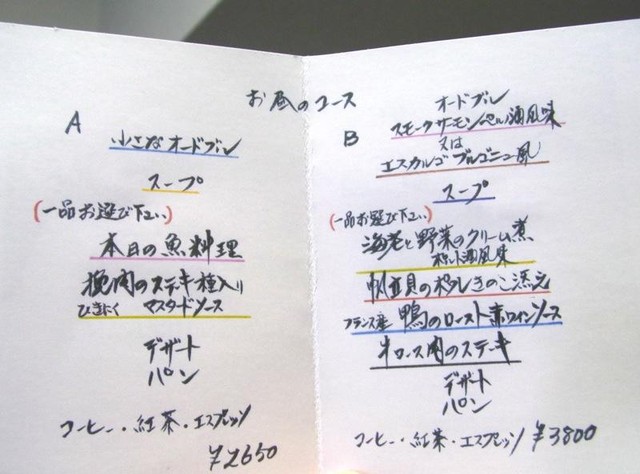 お昼のコース
A
小さなオードブル
スープ
(一品お選び下さい)
本日の魚料理
挽肉のステキ 粒入り
ひきにく マスタードソース
デザート
パン
コーヒー・紅茶・エスプレッソ
¥2650
B
オードブル
スモークサーモン 油風味
又は
エスカルゴ ブルゴニュー風
スープ
(一品お選び下さい)
海老と野菜のクリーム煮
酒風味
帆立貝のポワレきのこ添え
フランス産 鴨のロースト赤ワインソース
牛ロース肉のステキ
デザート
パン
コーヒー・紅茶・エスプレッソ ¥3800